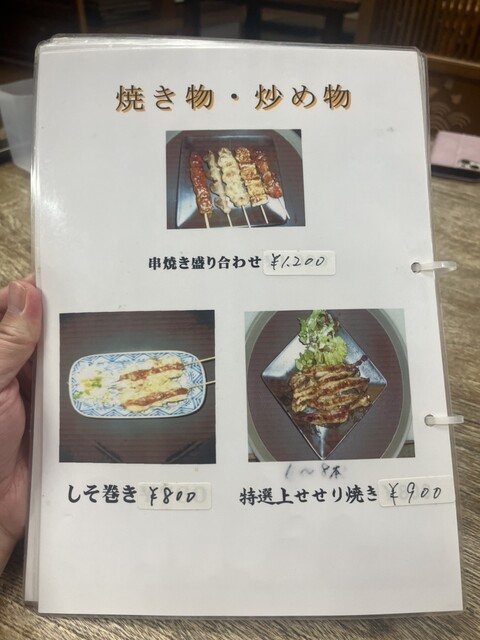 焼き物・炒め物
串焼き盛り合わせ ¥1,200
しそ巻き ¥800
特選上せせり焼き ¥900